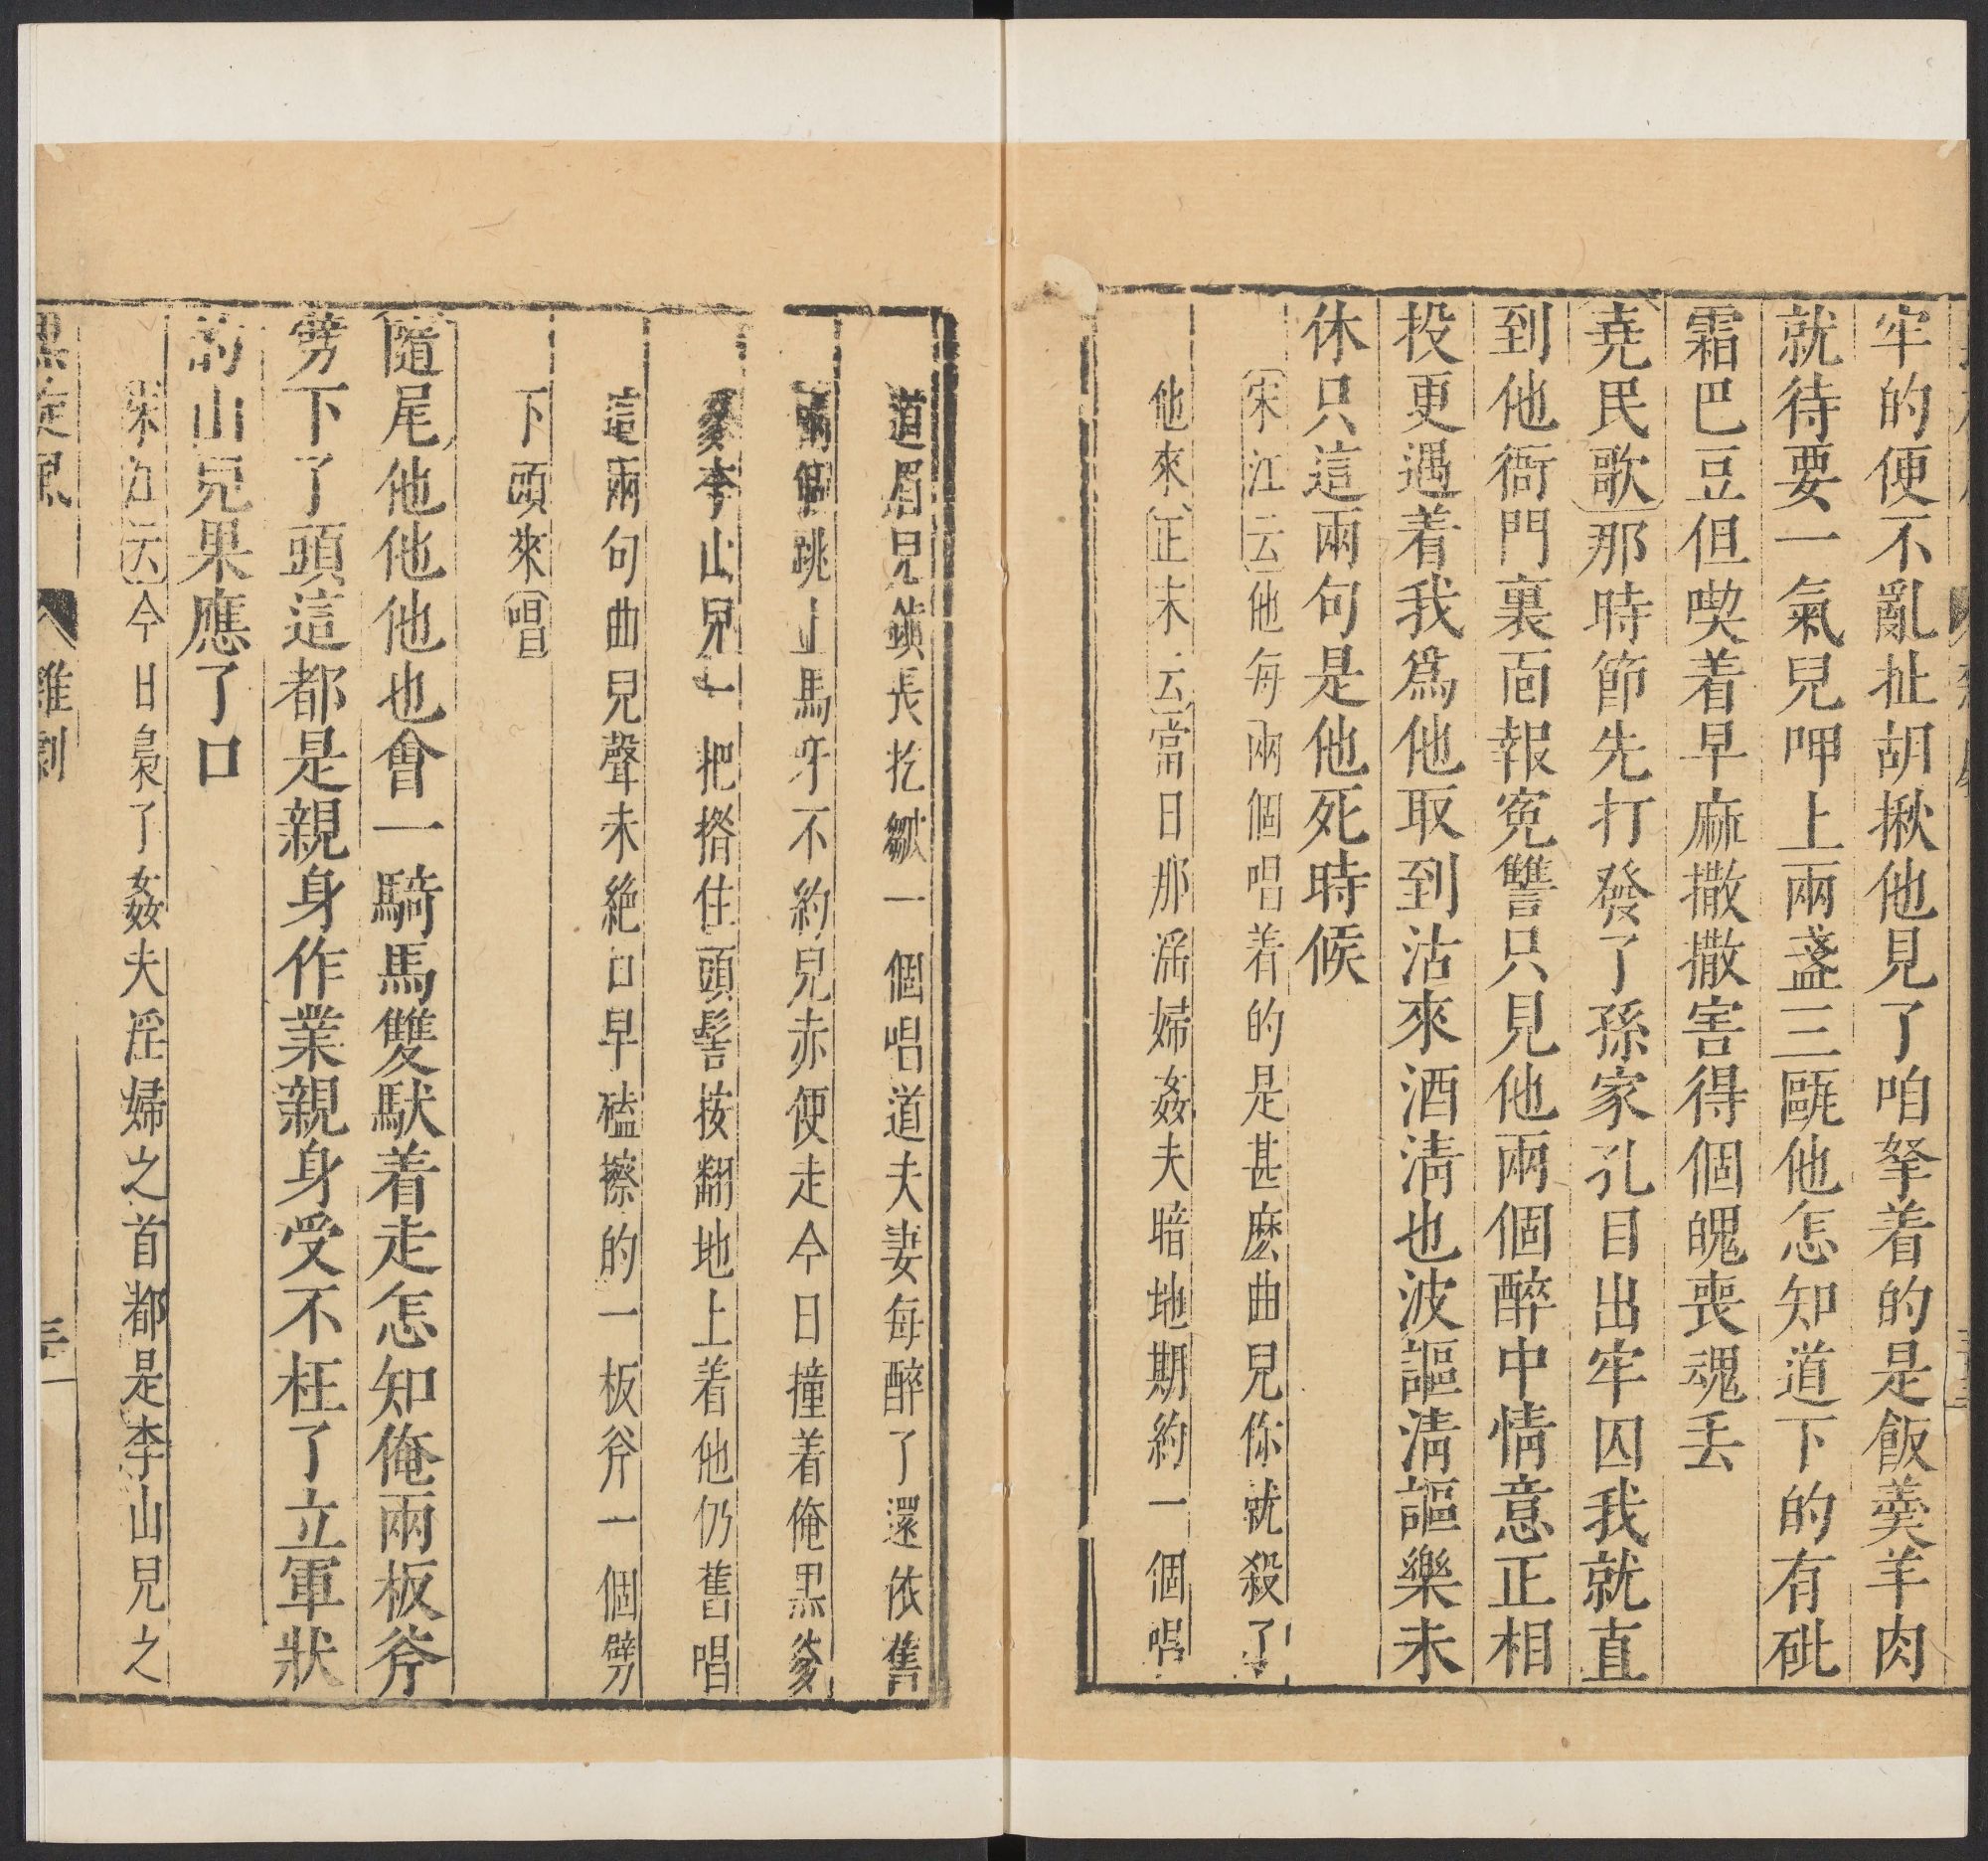 牢的便不亂扯胡揪他見了咱拏着的是飯羹羊肉
就待要一氣兒呷上兩盞三甌他怎知道下的有砒
霜巴豆但喫着早麻撒撒害得個魄喪魂丟
堯民歌那時節先打發了孫家孔目出牢囚我就直
到他衙門裏面報寃讐只見他兩個醉中情意正相
投更遇着我爲他取到沽來酒淸也波謳淸謳樂未
休只這兩句是他死時候
宋江云他每兩個唱着的是甚麽曲兒你就殺了
他來正末云當日那淫婦姦夫暗地期約一個唱
道眉兒鎖長扢皺一個唱道夫妻每醉了還依舊
兩個跳上馬牙不約兒赤便走今日撞着俺黑爹
爹李山兒一把撏住頭髻按翻地上着他仍舊唱
這兩句曲兒聲未絶口早磕擦的一板斧一個劈
下頭來唱
隨尾他他他也會一騎馬雙馱着走怎知俺兩板斧
劈下了頭這都是親身作業親身受不枉了立軍狀
的山兒果應了口
宋江云今日梟了姦夫淫婦之首都是李山兒之
黑旋風 雜劇